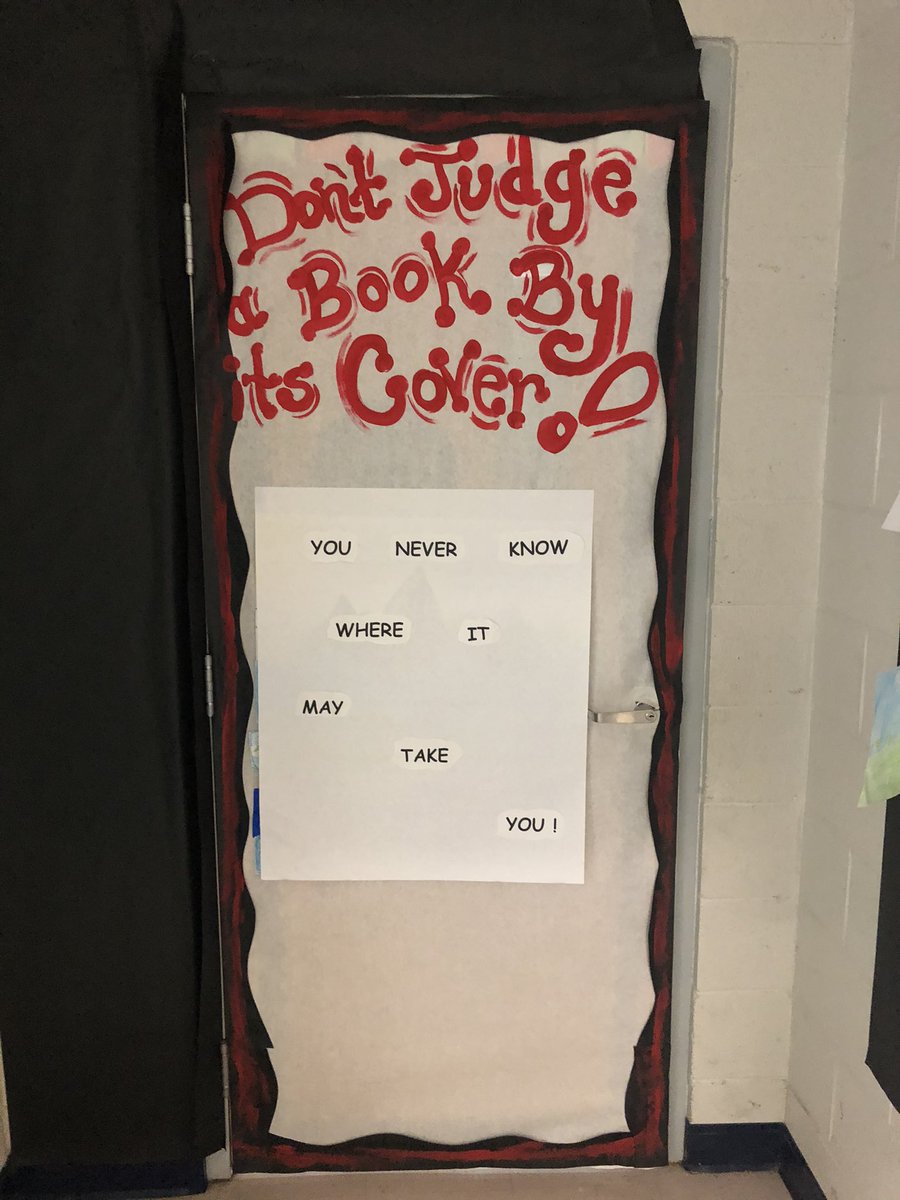 Don't Judge
a Book By
its Cover!
YOU NEVER KNOW
WHERE IT
MAY
TAKE
YOU !